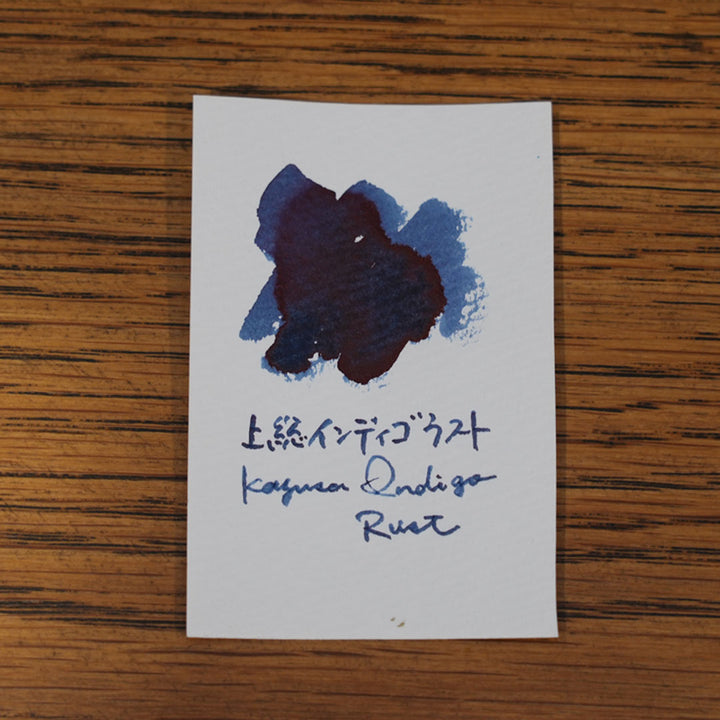 上総インディゴラスト
Kazusa Indigo
Rust